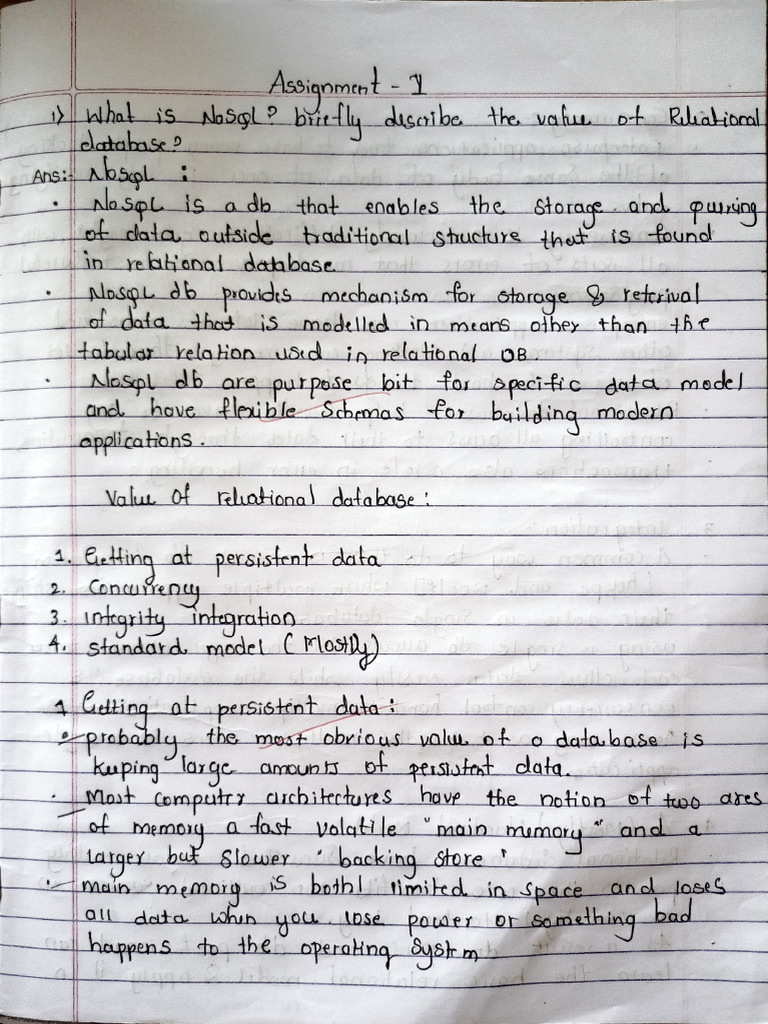 Assignment - 1
1) What is NoSql? briefly describe the value of Reliational
database?
Ans:- NoSql :
• NoSql is a db that enables the storage and quering
of data outside traditional structure that is found
in relational database.
• NoSql db provides mechanism for storage & reterival
of data that is modelled in means other than the
tabular relation used in relational DB
• NoSql db are purpose bit for specific data model
and have flexible Schemas for building modern
applications.
Value of reliational database:
1. Getting at persistent data
2. Concurrency
3. integrity integration
4. standard model (Mostly)
1 Getting at persistent data:
• probably the most obvious value of a database is
keeping large amounts of persistent data.
• Most computer architectures have the notion of two ares
of memory a fast volatile "main memory" and a
larger but slower "backing store"
• main memory is both limited in space and loses
all data when you lose power or something bad
happens to the operating system